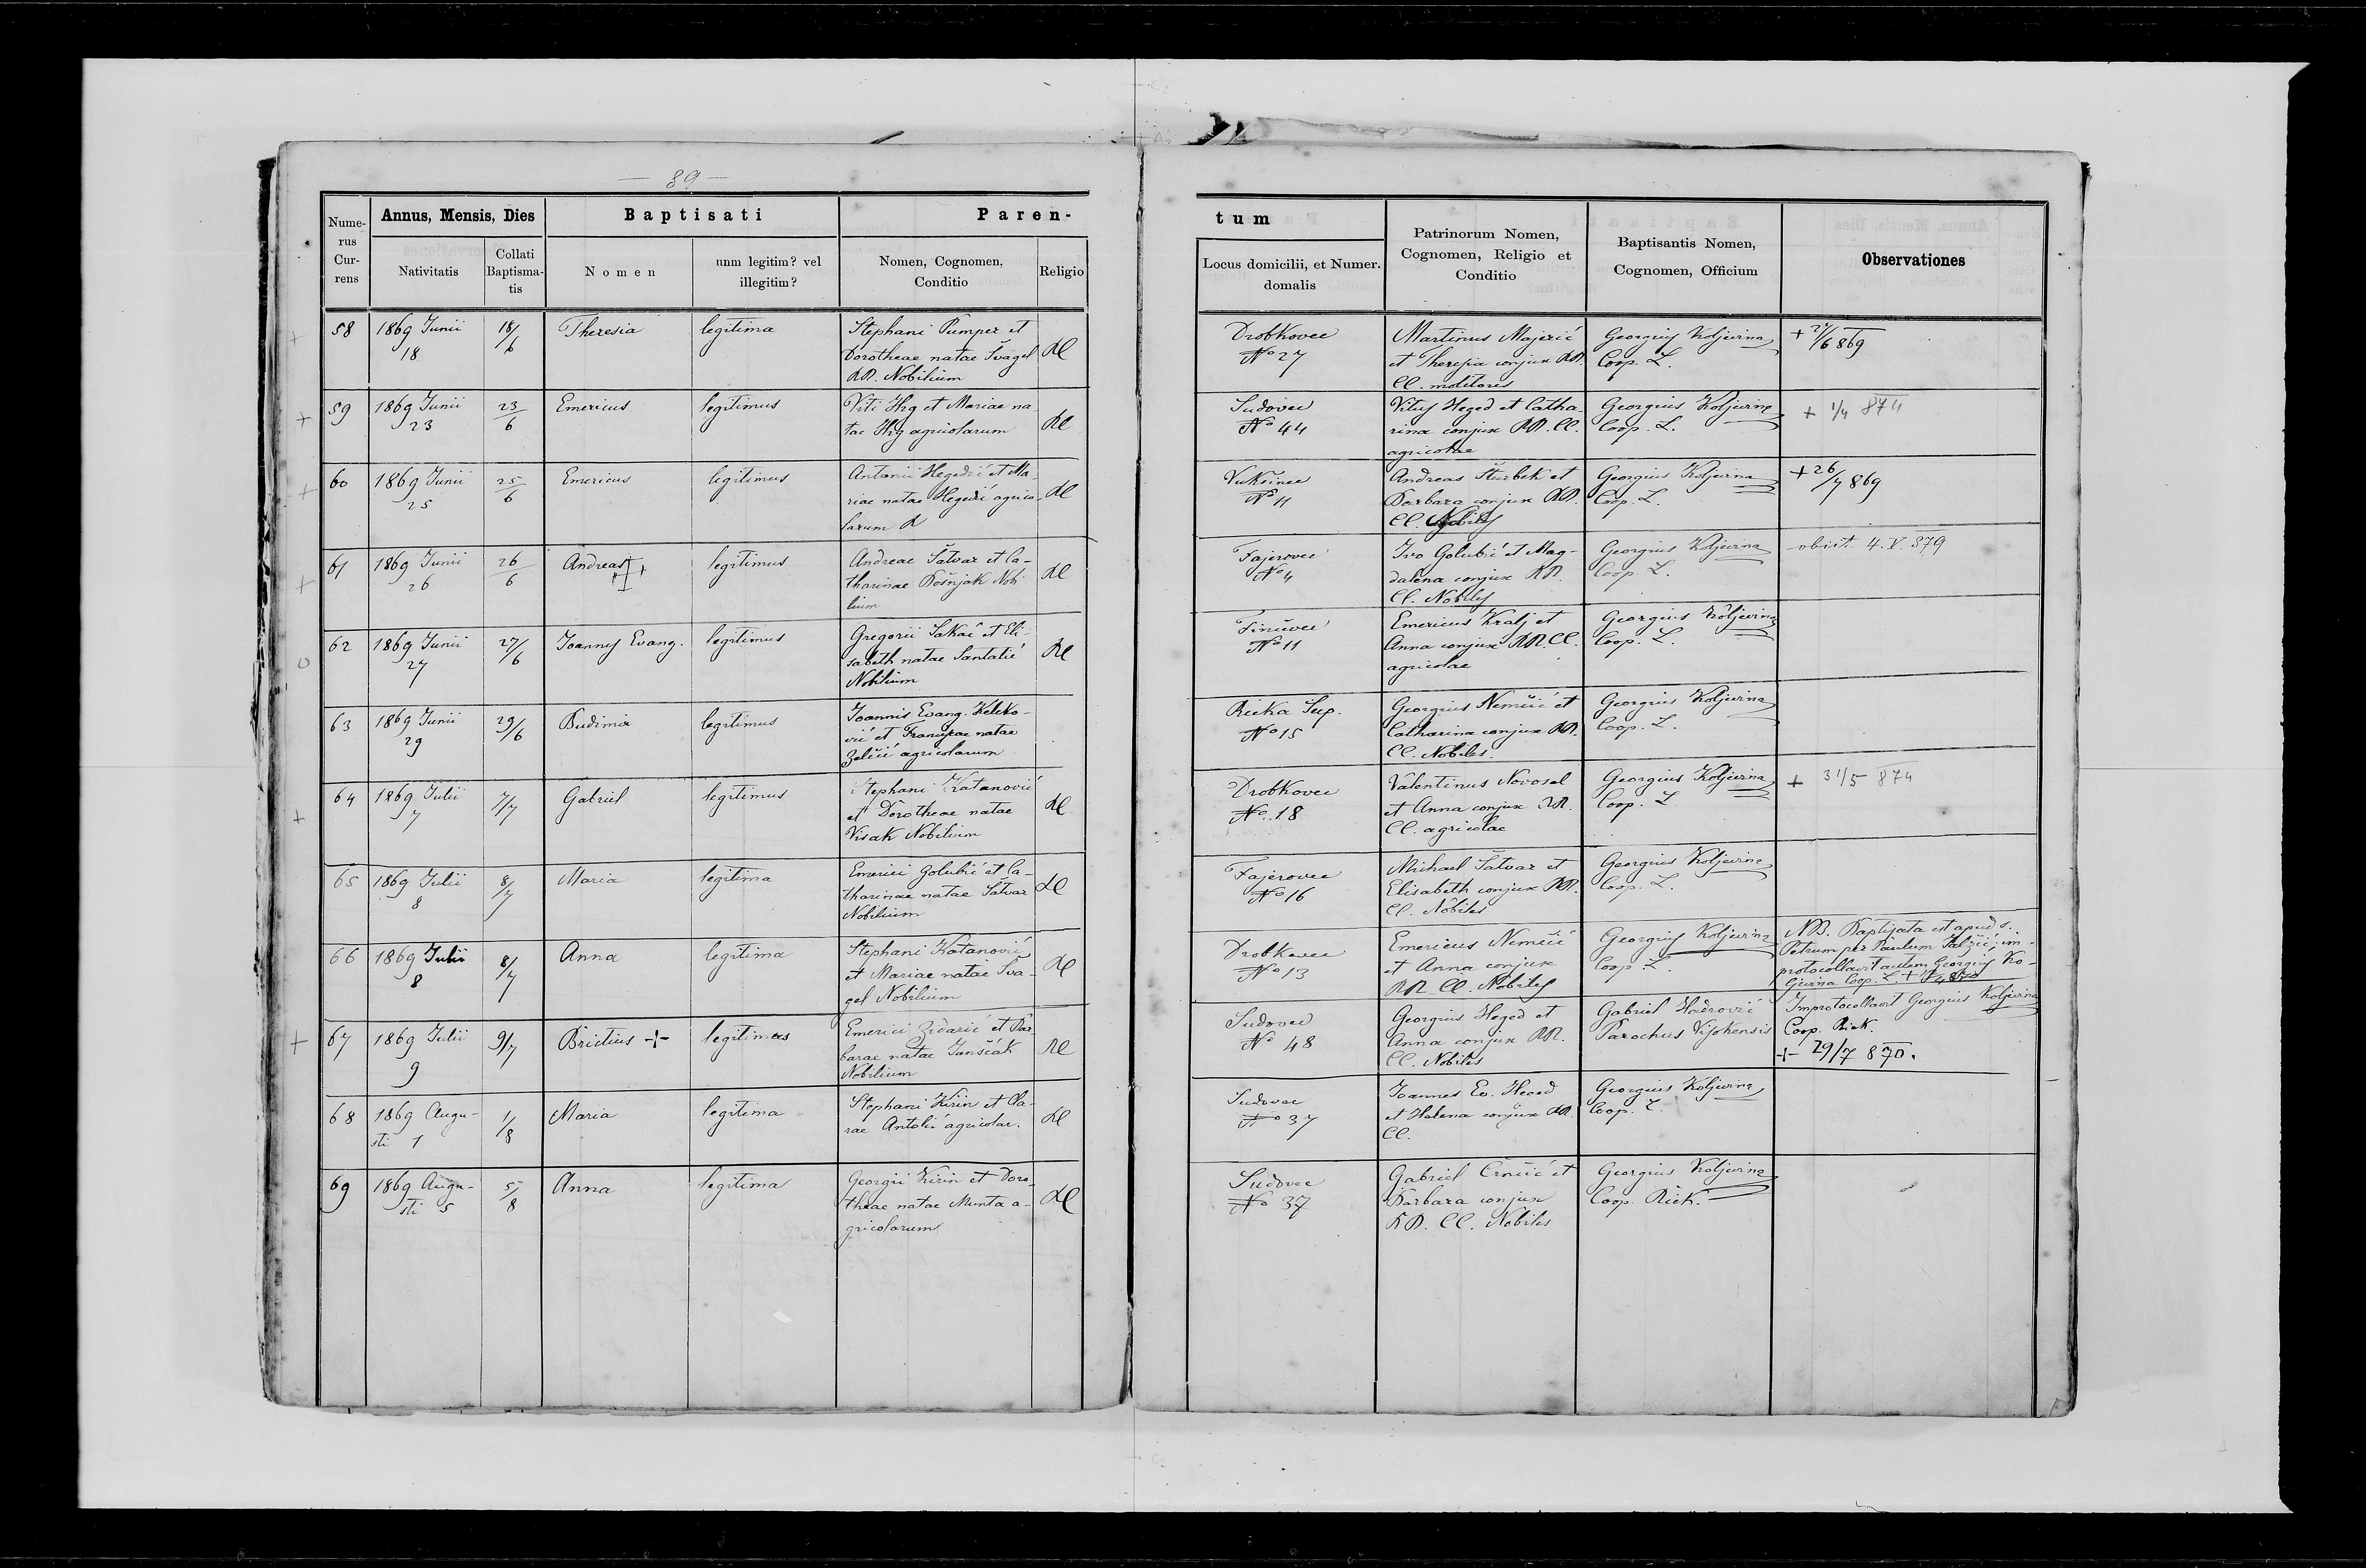 — 89 —
Nume-
rus
Cur-
rens
Annus, Mensis, Dies
Nativitatis
Collati
Baptisma-
tis
Baptisati
Nomen
unm legitim? vel
illegitim?
Paren-
Nomen, Cognomen,
Conditio
Religio
tum
Locus domicilii, et Numer.
domalis
Patrinorum Nomen,
Cognomen, Religio et
Conditio
Baptisantis Nomen,
Cognomen, Officium
Observationes
58
1869 Junii
18
18/6
Theresia
legitima
Stephani Pumper et
Dorotheae natae Švagel
RR. Nobilium
RC
Drobkovec
No 27
Martinus Majerić
et Theresia conjux RR.
CC. molitores
Georgius Koljerina
Coop. L.
+ 27/6 869
+
59
1869 Junii
23
23/6
Emericus
legitimus
Viti Hrg et Mariae na
tae Hrg agricolarum
RC
Sudovec
No 44
Vitus Heged et Catha-
rina conjux RR. CC.
agricolae
Georgius Koljerina
Coop. L.
+ 1/4 874
+
60
1869 Junii
25
25/6
Emericus
legitimus
Antonii Hegedić et Ma-
riae natae Hegedić agrico-
larum R
RC
Vukšinec
No 11
Andreas Šturbek et
Barbara conjux RR.
CC. Nobiles
Georgius Koljerina
Coop. L.
+ 26/7 869
+
61
1869 Junii
26
26/6
Andreas
legitimus
Andreae Šatvar et Ca-
tharinae Bošnjak Nobi
lium
RC
Fajerovec
No 4
Ivo Golubić et Mag-
dalena conjux RR.
CC. Nobiles
Georgius Koljerina
Coop. L.
obiit 4. V. 879
+
62
1869 Junii
27
27/6
Joannes Evang.
legitimus
Gregorii Sakač et Eli-
sabeth natae Santalić
Nobilium
RC
Finičvec
No 11
Emericus Kralj et
Anna conjux RR. CC.
agricolae
Georgius Koljerina
Coop. L.
63
1869 Junii
29
29/6
Budimir
legitimus
Joannis Evang. Keleko-
vić et Franciscae natae
Zelčić agricolarum
Rieka Sup.
No 15
Georgius Nemčić et
Catharina conjux RR.
CC. Nobiles.
Georgius Koljerina
Coop. L.
64
1869 Julii
7
7/7
Gabriel
legitimus
Stephani Katanović
et Dorotheae natae
Visak Nobilium
RC
Drobkovec
No. 18
Valentinus Novosel
et Anna conjux RR.
CC. agricolae
Georgius Koljerina
Coop. L
+ 31/5 874
+
65
1869 Julii
8
8/7
Maria
legitima
Emerici Golubić et Ca-
tharinae natae Šatvar
Nobilium
RC
Fajerovec
No 16
Michael Šatvar et
Elisabeth conjux RR.
CC. Nobiles
Georgius Koljerina
Coop. L.
66
1869 Julii
8
8/7
Anna
legitima
Stephani Katanović
et Mariae natae Šva-
gel Nobilium
RC
Drobkovec
No 13
Emericus Nemčić
et Anna conjux
RR. CC. Nobiles
Georgius Koljerina
Coop. L.
NB. Baptisata est apud s.
Petrum per Paulum; im-
protocollavit autem Georgius Ko-
ljerina Coop. L.
67
1869 Julii
9
9/7
Brictius +
legitimus
Emerici Zidarić et Bar
barae natae Jansčak
Nobilium
RC
Sudovec
No 48
Georgius Heged et
Anna conjux RR.
CC. Nobiles
Gabriel Hadrović
Parochus Visokensis
Improtocollavit Georgius Koljerina
Coop. Riek.
+ 29/7 870.
+
68
1869 Augu-
sti 1
1/8
Maria
legitima
Stephani Kirin et Cla-
rae Antolić agricolar.
RC
Sudovec
No 37
Joannes Ev. Heged
et Helena conjux RR.
CC.
Georgius Koljerina
Coop. L.
69
1869 Augu-
sti 5
5/8
Anna
legitima
Georgii Kirin et Doro-
theae natae Munta a-
gricolarum
RC
Sudovec
No 37
Gabriel Črnčić et
Barbara conjux
RR. CC. Nobiles
Georgius Koljerina
Coop. Riek.